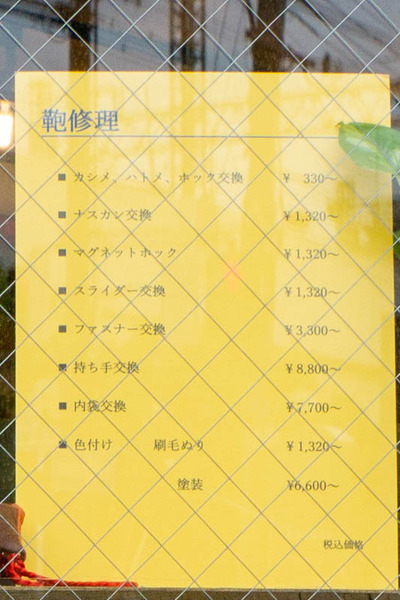 鞄修理
■ カシメ、ハトメ、ホック交換 ¥ 330～
■ ナスカン交換 ¥1,320～
■ マグネットホック ¥1,320～
■ スライダー交換 ¥1,320～
■ ファスナー交換 ¥3,300～
■ 持ち手交換 ¥8,800～
■ 内袋交換 ¥7,700～
■ 色付け 刷毛ぬり ¥1,320～
塗装 ¥6,600～
税込価格